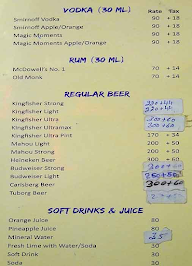 VODKA (30 ML) Rate Tax
Smirnoff Vodka 90 + 18
Smirnoff Apple/Orange 90 + 18
Magic Moments 90 + 18
Magic Moments Apple/Orange 90 + 18
RUM (30 ML)
McDowell's No. 1 70 + 14
Old Monk 70 + 14
REGULAR BEER
Kingfisher Strong
Kingfisher Light
Kingfisher Ultra
Kingfisher Ultramax
Kingfisher Ultra Pint 170 + 34
Mahou Light 200 + 50
Mahou Strong 200 + 50
Heineken Beer 300 + 60
Budweiser Strong
Budweiser Light 250+50
Carlsberg Beer 300+60
Tuborg Beer
SOFT DRINKS & JUICE
Orange Juice 80
Pineapple Juice 80
Mineral Water 25
Fresh Lime with Water/Soda 30
Soft Drink 30
Soda 30